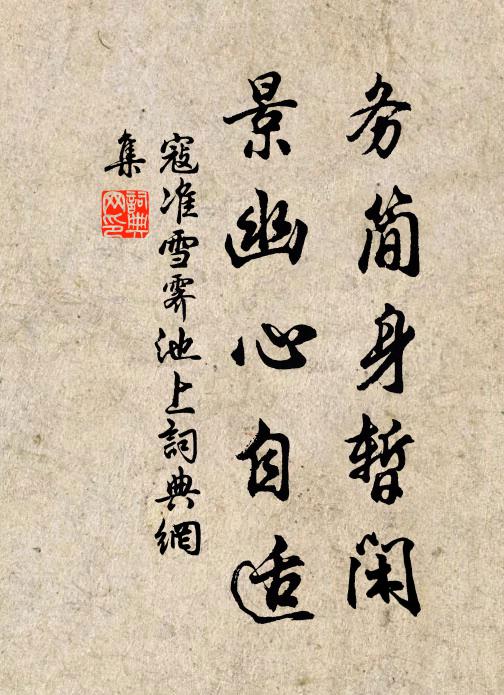 务简身暂闲
景幽心自适
寇准雪霁池上词典網
集
詞典
网印